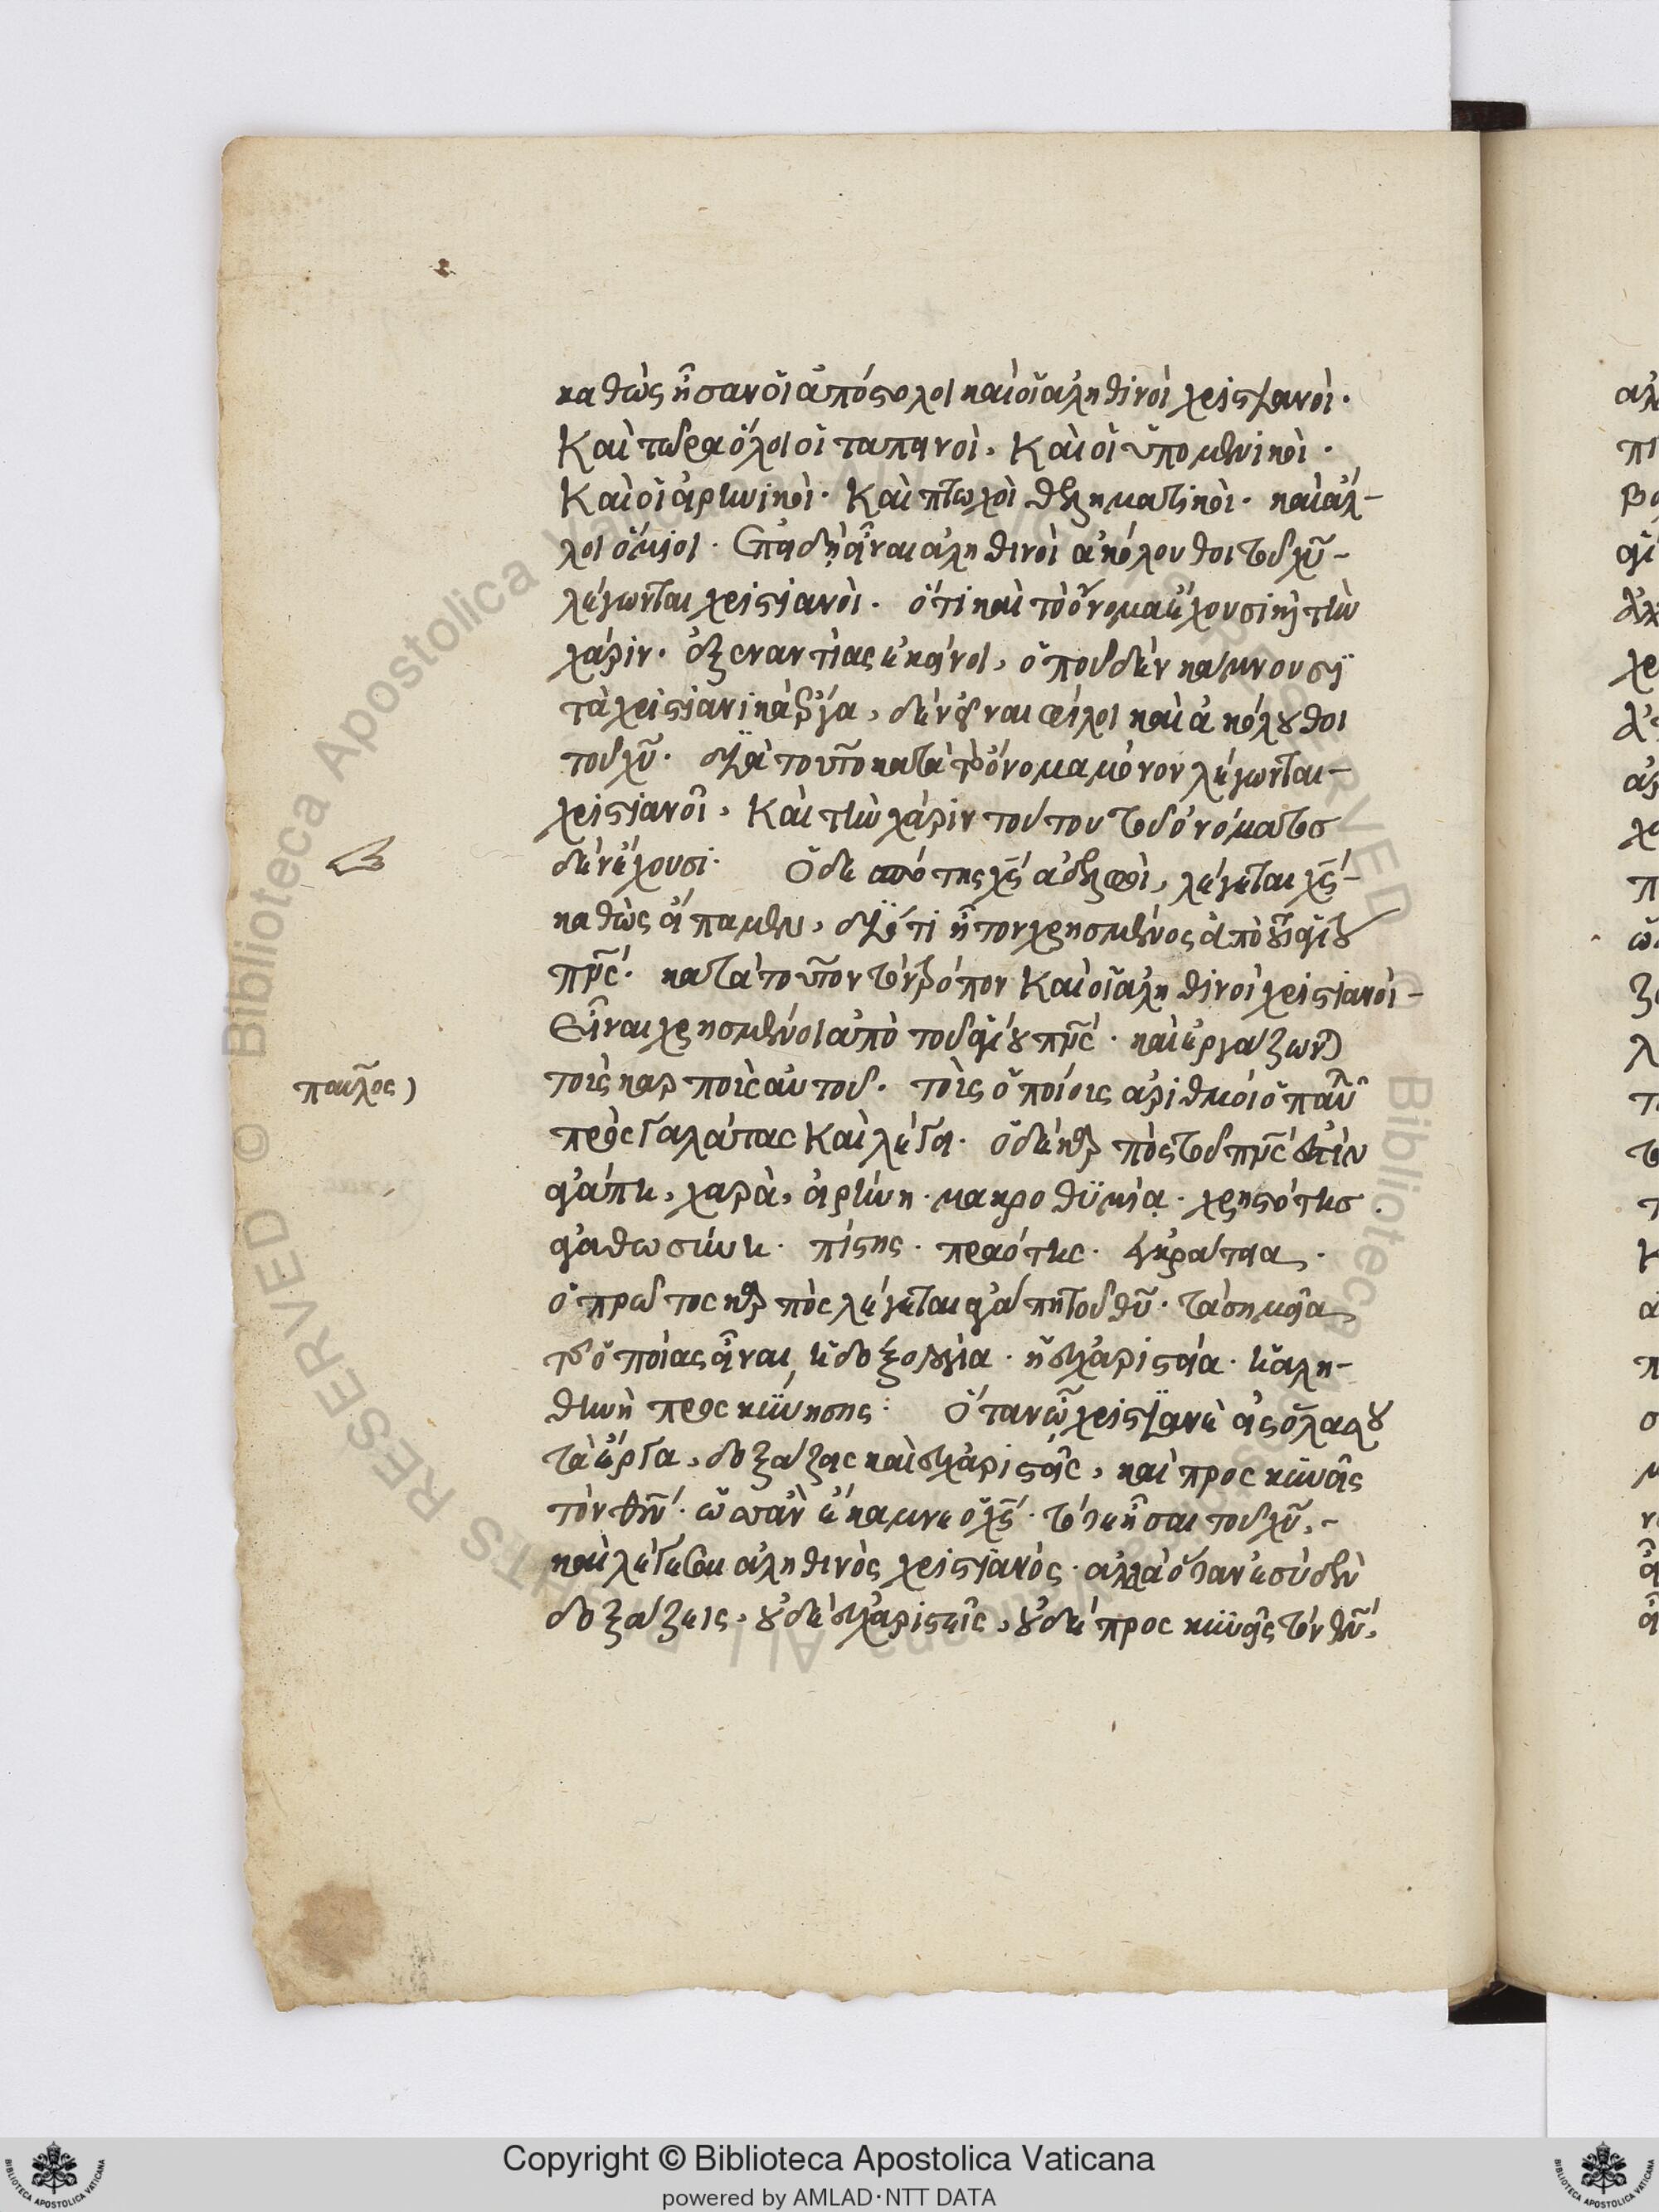 καθὼς ἦσαν οἱ ἀπόστολοι καὶ οἱ ἀληθινοὶ χριστιανοὶ·
Καὶ τώρα ὅλοι οἱ ταπεινοὶ, Καὶ οἱ ὑπομενικοὶ·
Καὶ οἱ εἰρηνικοὶ· Καὶ πτωχοὶ θεληματικοὶ· καὶ ἄλ-
λοι ὅμιοι· Ἐπειδὴ εἶναι ἀληθινοὶ ἀκόλουθοι τοῦ χῦ-
λέγωνται χριστιανοὶ· ὅτι καὶ τὸ ὄνομα ἔχουσι καὶ τὴν
χάριν· ἐξεναντίας ἐκεῖνοι, ὁποῦ δὲν κάμνουσϊ
τὰ χριστιανικὰ ἔργα, δὲν εἶναι φίλοι καὶ ἀκόλουθοι
τοῦ χῦ· διὰ τοῦτο κατὰ τὸ ὄνομα μόνον λέγωνται-
χριστιανοῖ, Καὶ τὴν χάριν τούτου τοῦ ὀνόματος
δὲν ἔχουσι· Ὁ δὲ ἀπό της χς ἀδελφοὶ, λέγεται χς-
καθὼς εἴπαμεν, διότι ἦτον χρησμένος ἀπὸ
πρς· κατὰ τοῦτον τὸν τρόπον Καὶ οἱ ἀληθινοὶ χριστιανοὶ-
Εἶναι χρησμένοι ἀπὸ τοῦ ἁγίου πνς· καὶ ἐργάζων
τοὶς καρποὶς αὐτοῦ· τοὶς ὁποίοις ἀριθμεῖ ὁ παῦλ
παῦλος)
πρὸς Γαλάτας Καὶ λέγει· ὁ δὲ καρπὸς τοῦ πνς ἐστὶν
ἀγάπη, χαρὰ, εἰρήνη· μακροθϋμία· χρηστότης·
ἀγαθωσύνη· πίστης· πραότης· ἐγκράτεια·
ὁ πρῶτος καρπὸς λέγεται ἀγάπη τοῦ θῦ· τὰ σημεῖα
τῆς ὁποίας εἶναι, ἡ δοξολογία· ἡ εὐχαριστεία· ἡ ἀλη-
θηνὴ προσκύνησης· Ὅταν ὦ χριστϊανὲ εἰς ὅλα σου
τὰ ἔργα, δοξάζεις καὶ εὐχαριστεῖς, καὶ προσκυνεῖς
τὸν θν· ὡσὰν ἔκαμνε ὁ χς· τότε ἦσαι τοῦ χῦ,-
καὶ λέγεσαι ἀληθινὸς χριστϊανὸς· ἀλλὰ ὅταν ἐσὺ δὲν
δοξάζεις, οὐδὲ εὐχαριστεῖς, οὐδὲ προσκυνεῖς τὸν θν,
Copyright © Biblioteca Apostolica Vaticana
powered by AMLAD·NTT DATA